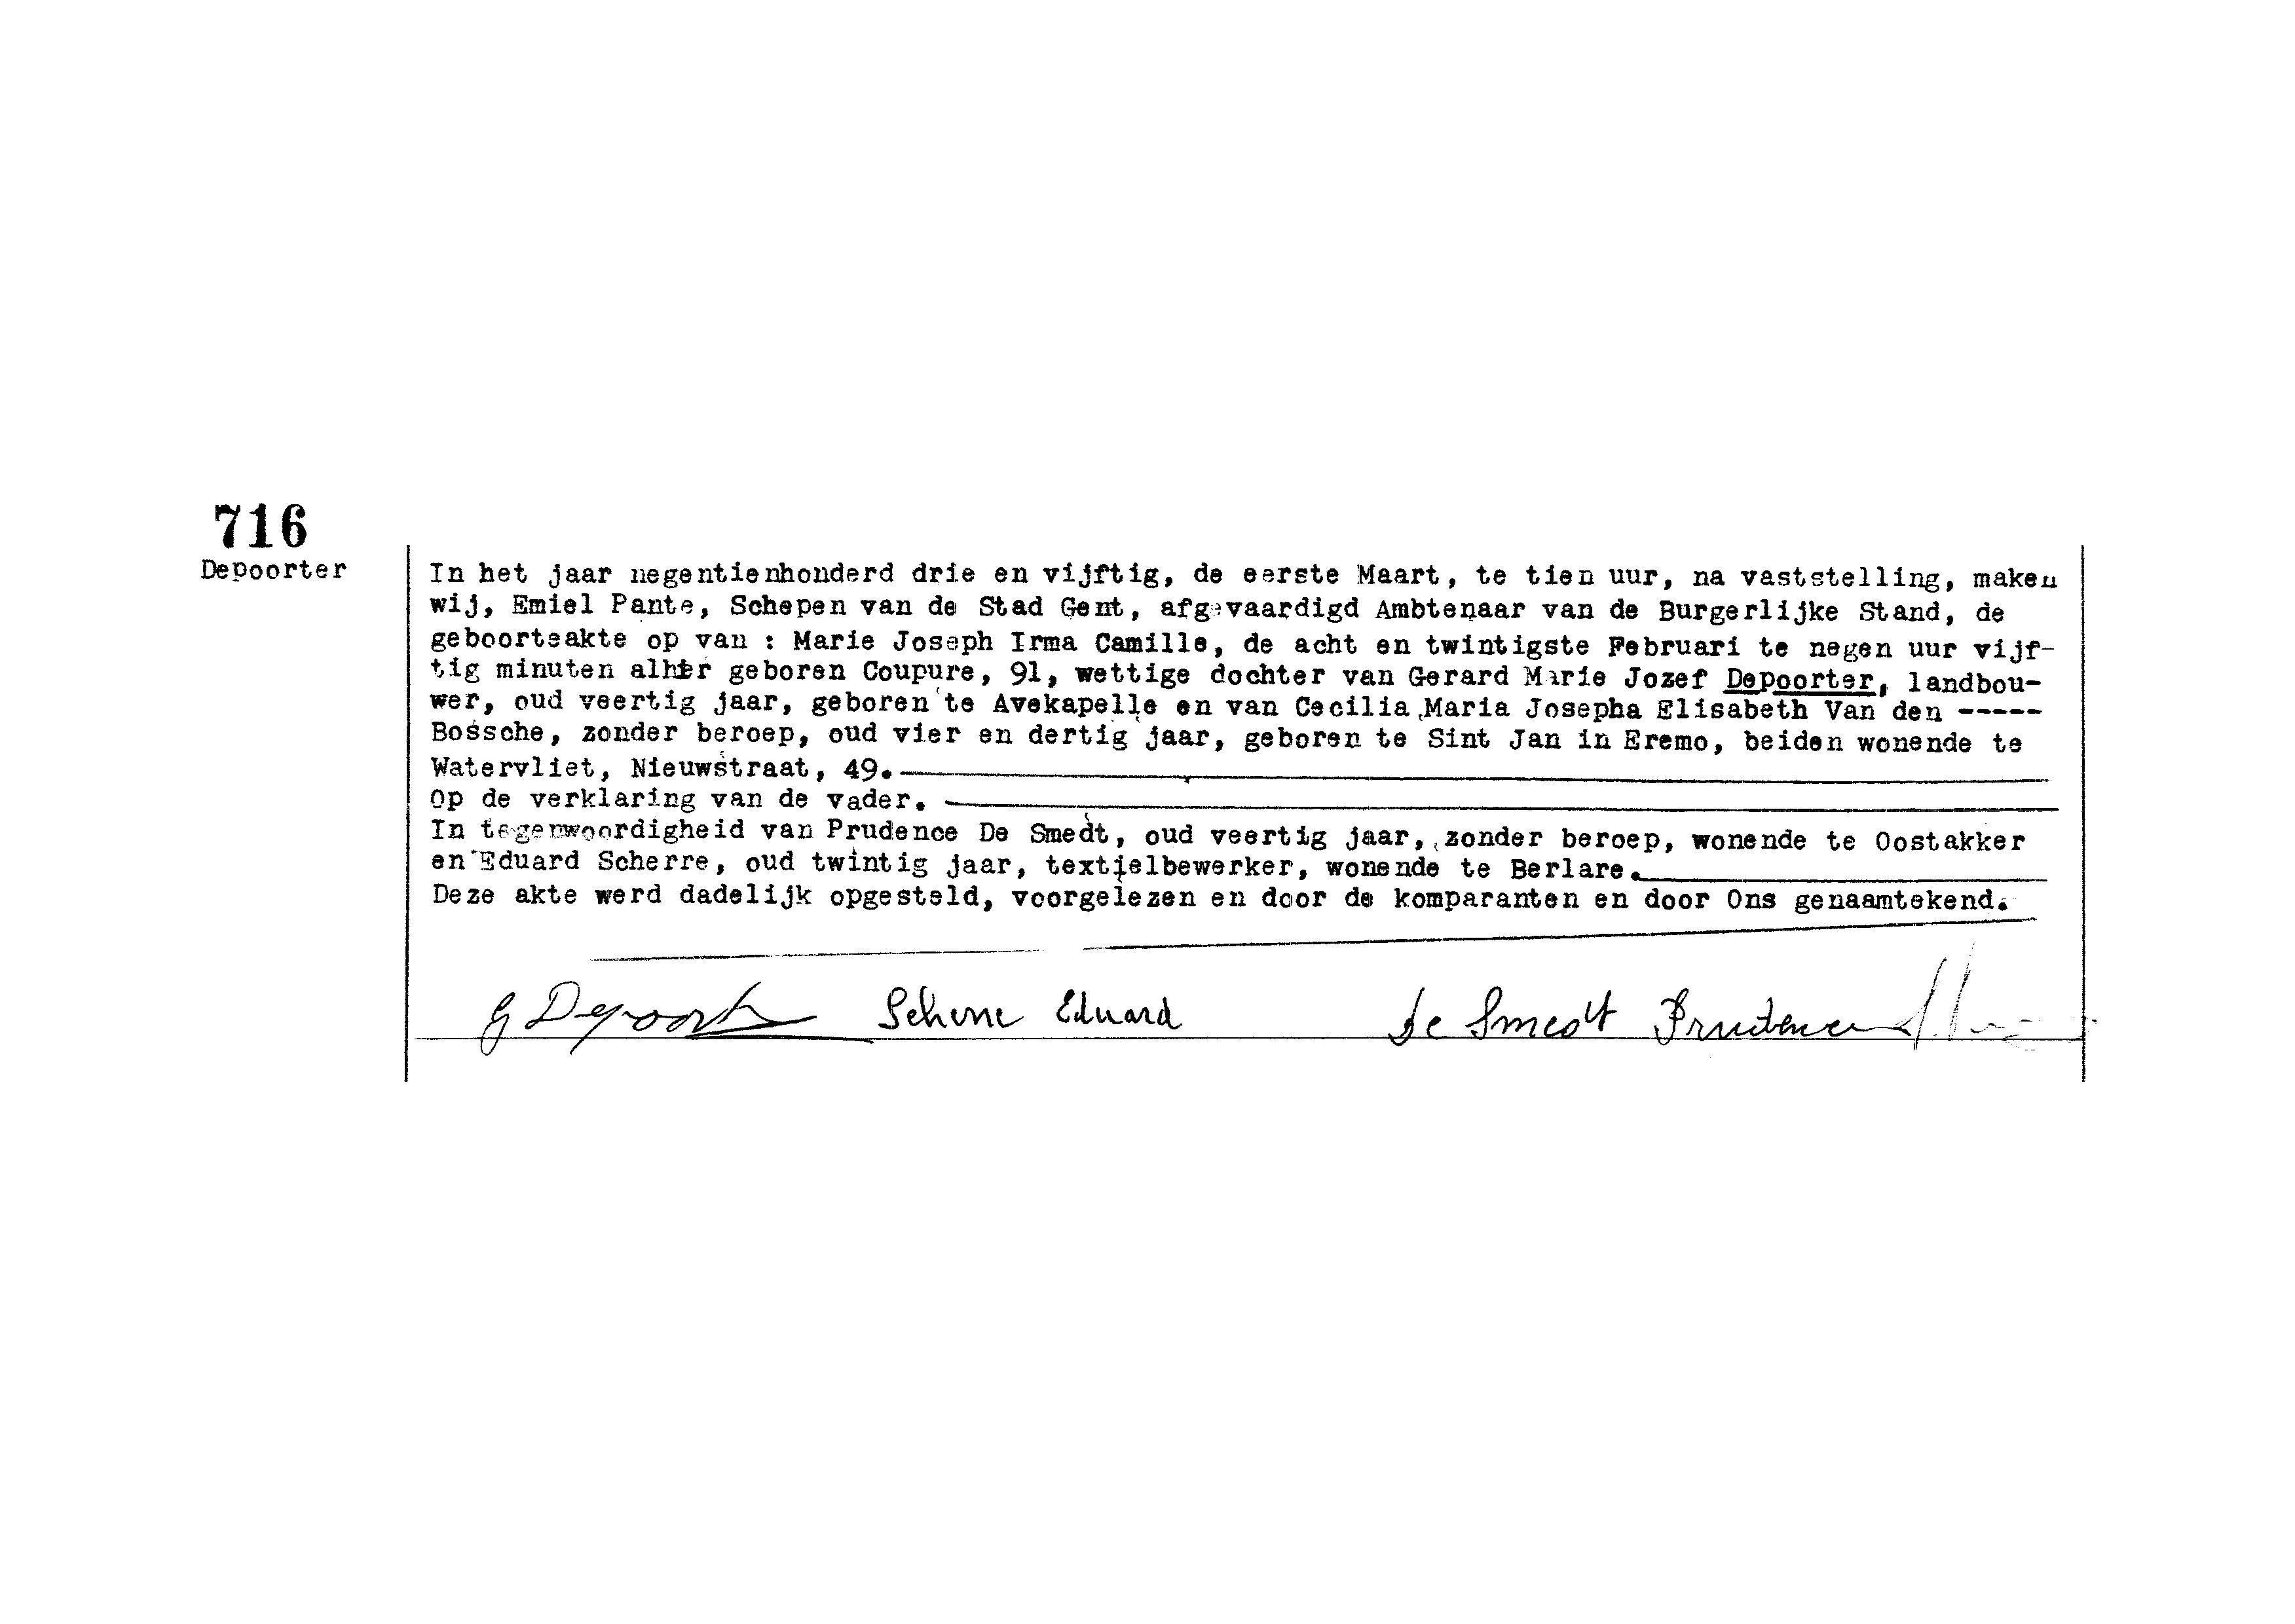 716
Depoorter
In het jaar negentienhonderd drie en vijftig, de eerste Maart, te tien uur, na vaststelling, maken
wij, Emiel Pante, Schepen van de Stad Gent, afgevaardigd Ambtenaar van de Burgerlijke Stand, de
geboorteakte op van : Marie Joseph Irma Camille, de acht en twintigste Februari te negen uur vijf-
tig minuten alhier geboren Coupure, 91, wettige dochter van Gerard Marie Jozef Depoorter, landbou-
wer, oud veertig jaar, geboren te Avekapelle en van Cecilia Maria Josepha Elisabeth Van den -----
Bossche, zonder beroep, oud vier en dertig jaar, geboren te Sint Jan in Eremo, beiden wonende te
Watervliet, Nieuwstraat, 49.
Op de verklaring van de vader.
In tegenwoordigheid van Prudence De Smedt, oud veertig jaar, zonder beroep, wonende te Oostakker
en Eduard Scherre, oud twintig jaar, textielbewerker, wonende te Berlare.
Deze akte werd dadelijk opgesteld, voorgelezen en door de komparanten en door Ons genaamtekend.
G Depoorter Scherre Eduard De Smedt Prudence